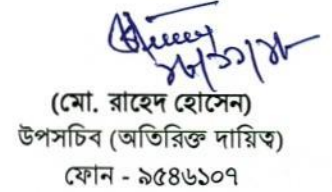 ১৮/১১/১৮
(মো. রাহেদ হোসেন)
উপসচিব (অতিরিক্ত দায়িত্ব)
ফোন - ৯৫৪৬১০৭